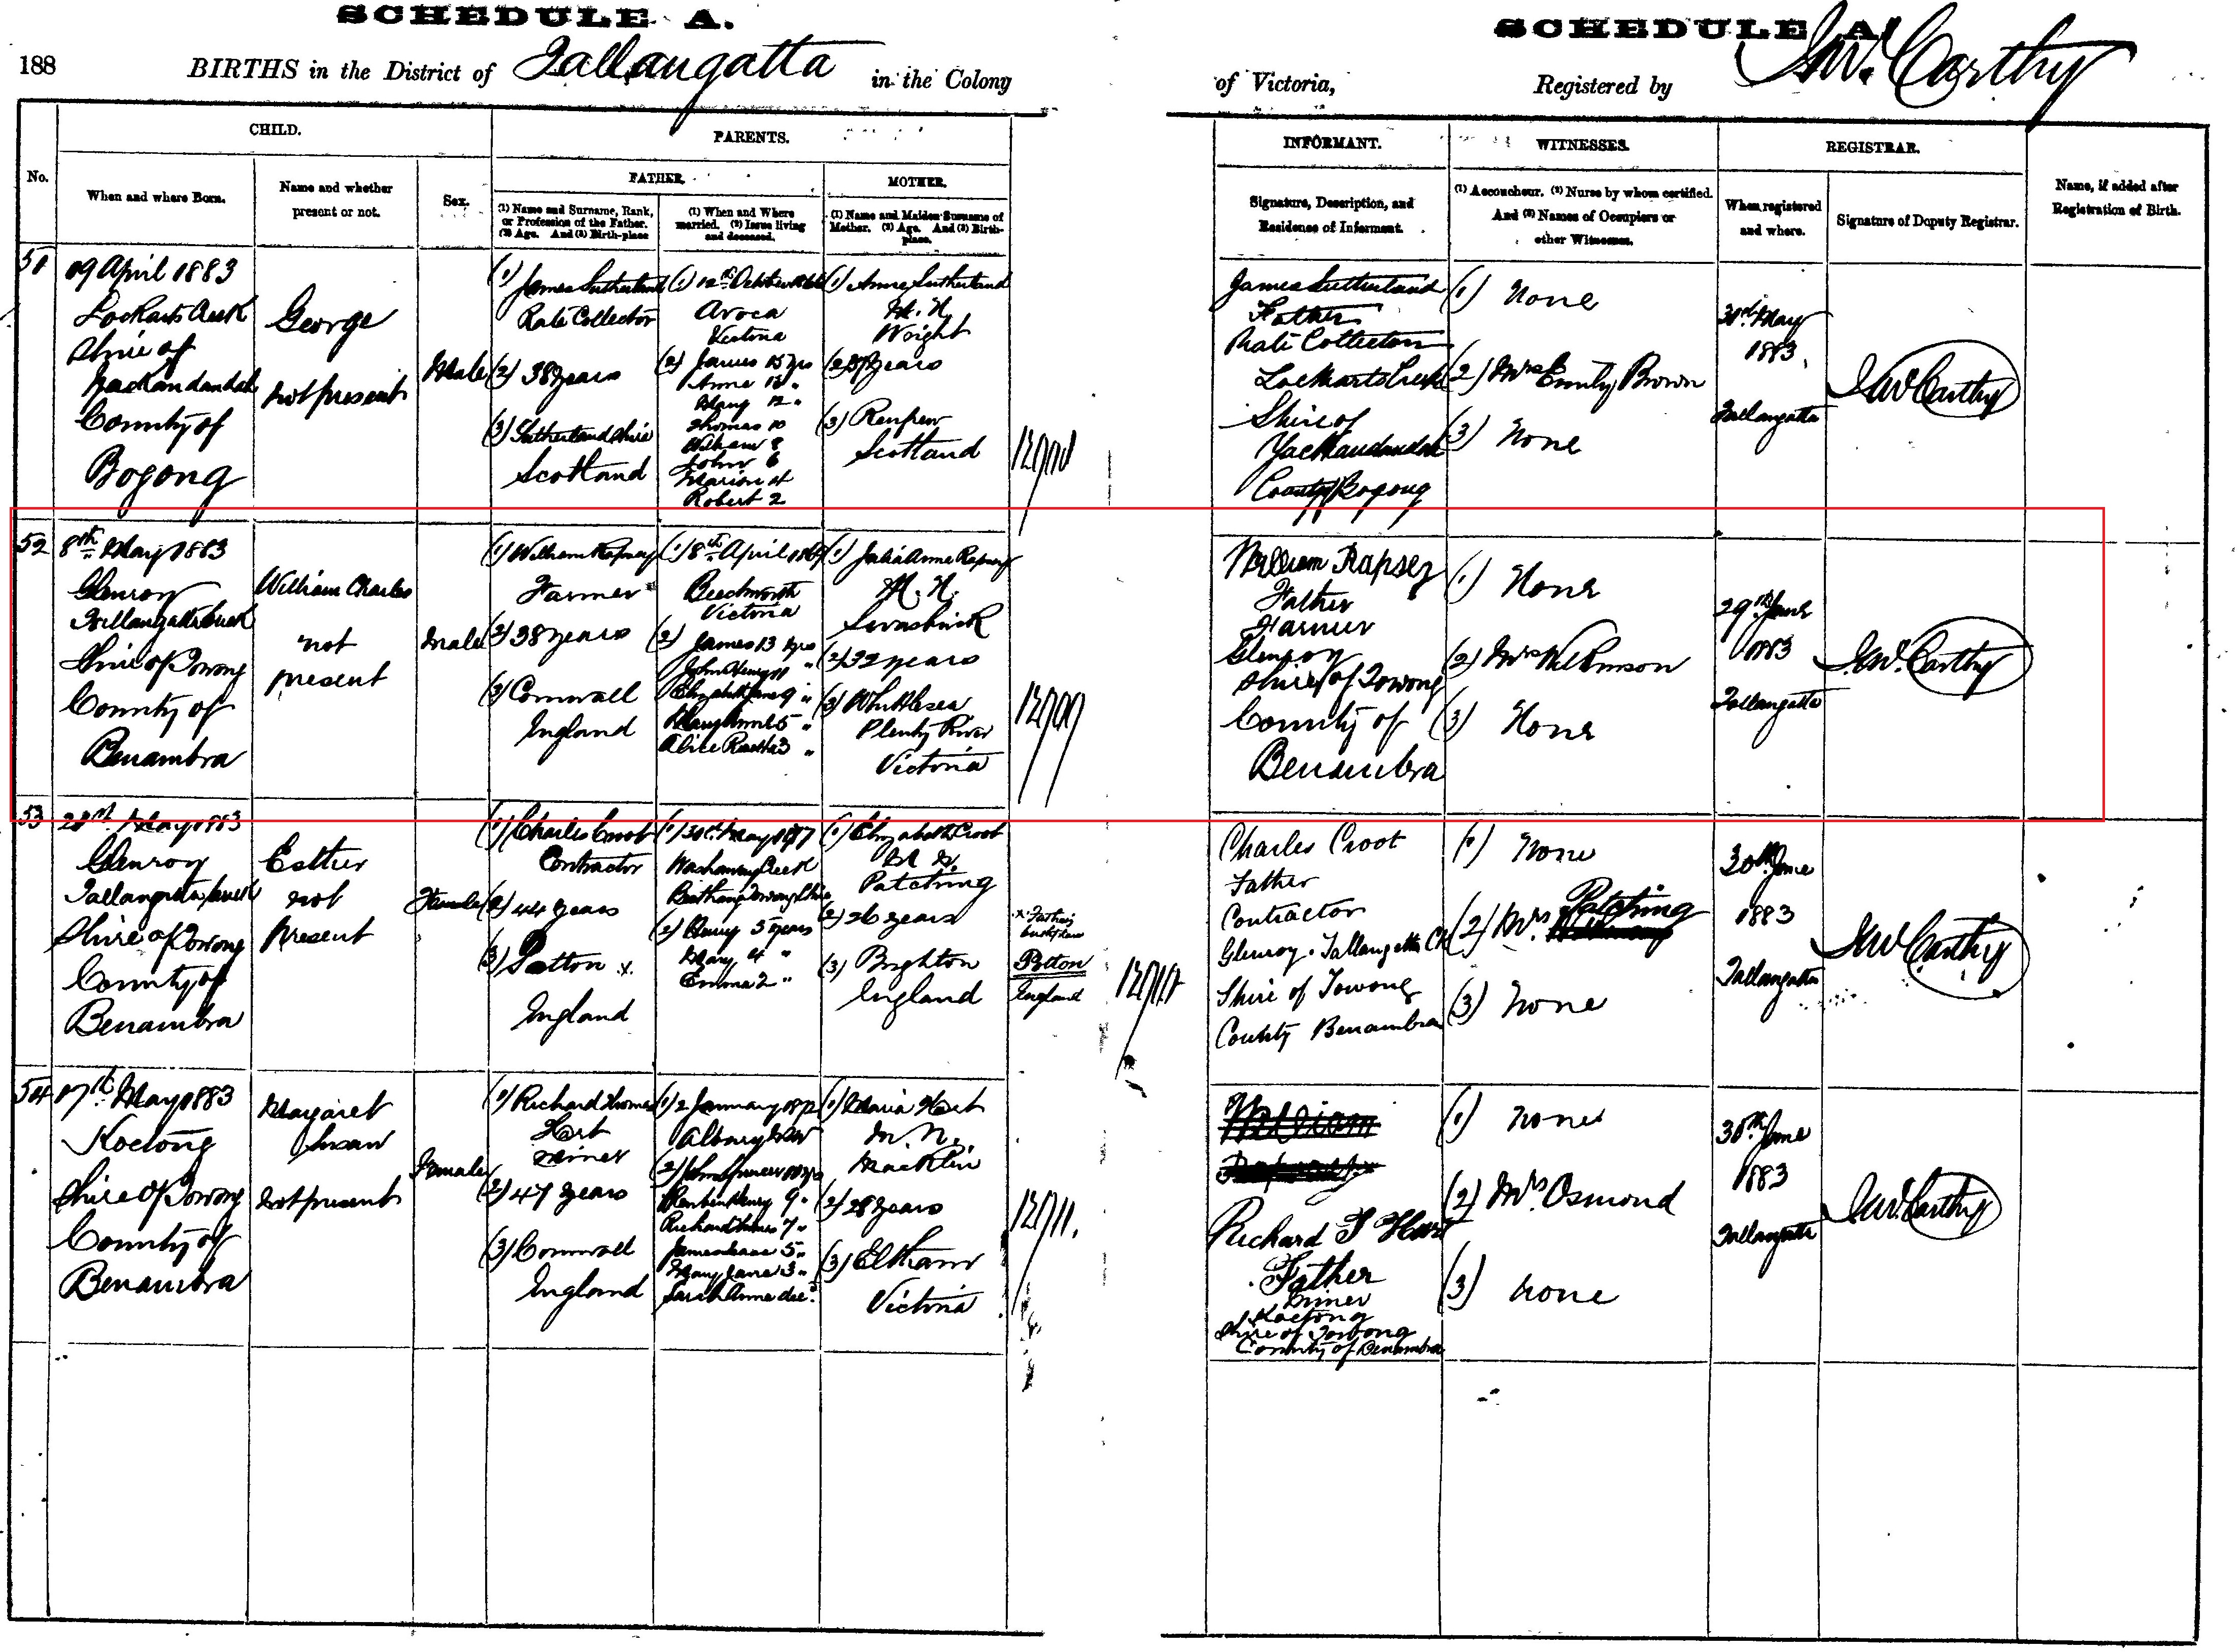 SCHEDULE A.
188
BIRTHS in the District of Tallangatta in the Colony
CHILD.
PARENTS.
No.
When and where Born.
Name and whether
present or not.
Sex.
FATHER.
MOTHER.
(1) Name and Surname, Rank,
or Profession of the Father.
(2) Age. And (3) Birth-place
(1) When and Where
married. (2) Issue living
and deceased.
(1) Name and Maiden Surname of
Mother. (2) Age. And (3) Birth-
place.
51
19 April 1883
Lockarts Creek
Shire of
Yackandandah
County of
Bogong
George
not present
Male
(1) James Sutherland
Rate Collector
(2) 38 years
(3) Sutherland Shire
Scotland
(1) 12th October
Avoca
Victoria
(2) James 15 yrs
Anne 13 "
Mary 12 "
Thomas 10
William 8
John 6
Marion 4
Robert 2
(1) Anne Sutherland
M. N.
Wright
(2) years
(3) Renfrew
Scotland
52
8th May 1883
Glenroy
Tallangatta Creek
Shire of Towong
County of
Benambra
William Charles
not
present
Male
(1) William Rapsey
Farmer
(2) 38 years
(3) Cornwall
England
(1) 8th April 1869
Beechworth
Victoria
(2) James 13 yrs
John Henry 11 "
Elizabeth Jane 9 "
Mary Anne 5 "
Alice 3 "
(1) Julia Anne Rapsey
M. N.
(2) 32 years
(3) Whittlesea
Plenty River
Victoria
12909
53
May 1883
Glenroy
Tallangatta Creek
Shire of Towong
County of
Benambra
Esther
not
Present
Female
(1) Charles Croot
Contractor
(2) 44 years
(3) Potton x.
England
(1) May 1877
Towong Shire
(2) Henry 5 years
Mary 4 "
Emma 2 "
(1) Elizabeth Croot
M. N.
Patching
(2) 26 years
(3) Brighton
England
x Father's
birthplace
Potton
England
12910
54
17th May 1883
Koetong
Shire of Towong
County of
Benambra
Margaret
Susan
not present
Female
(1) Richard Thomas
Hart
miner
(2) 47 years
(3) Cornwall
England
(1) 2 January 1872
Albury NSW
(2) 10 yrs
Reuben Henry 9 "
Richard Thomas 7 "
James Isaac 5 "
Mary Jane 3 "
Sarah Anne dec.d
(1) Maria Hart
M. N.
Macklin
(2) 28 years
(3) Eltham
Victoria
12911.
SCHEDULE A.
of Victoria,
Registered by
J.W. Carthy
INFORMANT.
WITNESSES.
REGISTRAR.
Signature, Description, and
Residence of Informant.
(1) Accoucheur. (2) Nurse by whom certified.
And (3) Names of Occupiers or
other Witnesses.
When registered
and where.
Signature of Deputy Registrar.
Name, if added after
Registration of Birth.
James Sutherland
Father
Rate Collector
Lockharts Creek
Shire of
Yackandandah
County Bogong
(1) None
(2) Mrs Emily Brown
(3) None
May
1883.
Tallangatta
J.W. Carthy
William Rapsey
Father
Farmer
Glenroy
Shire of Towong
County of
Benambra
(1) None
(2) Mrs Wilkinson
(3) None
29th June
1883
Tallangatta
J.W. Carthy
Charles Croot
Father
Contractor
Glenroy. Tallangatta Ck
Shire of Towong
County Benambra
(1) None
(2) Mrs Patching
(3) None
30th June
1883
Tallangatta
J.W. Carthy
William
Richard T Hart
Father
Miner
Koetong
Shire of Towong
County of Benambra
(1) None
(2) Mrs. Osmond
(3) None
30th June
1883
Tallangatta
J.W. Carthy